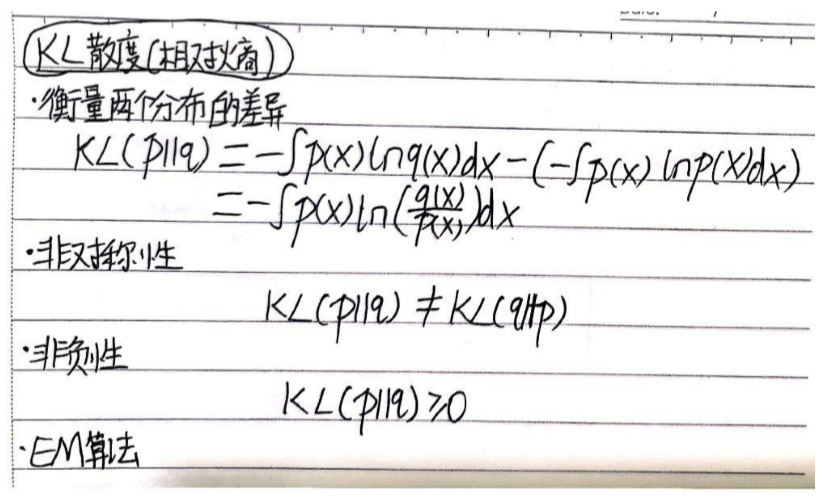 KL散度(相对熵)
·衡量两个分布的差异
KL(p||q) = -∫p(x)lnq(x)dx - (-∫p(x) lnp(x)dx)
= -∫p(x)ln(q(x)/p(x))dx
·非对称性
KL(p||q) ≠ KL(q||p)
·非负性
KL(p||q) ≥ 0
·EM算法